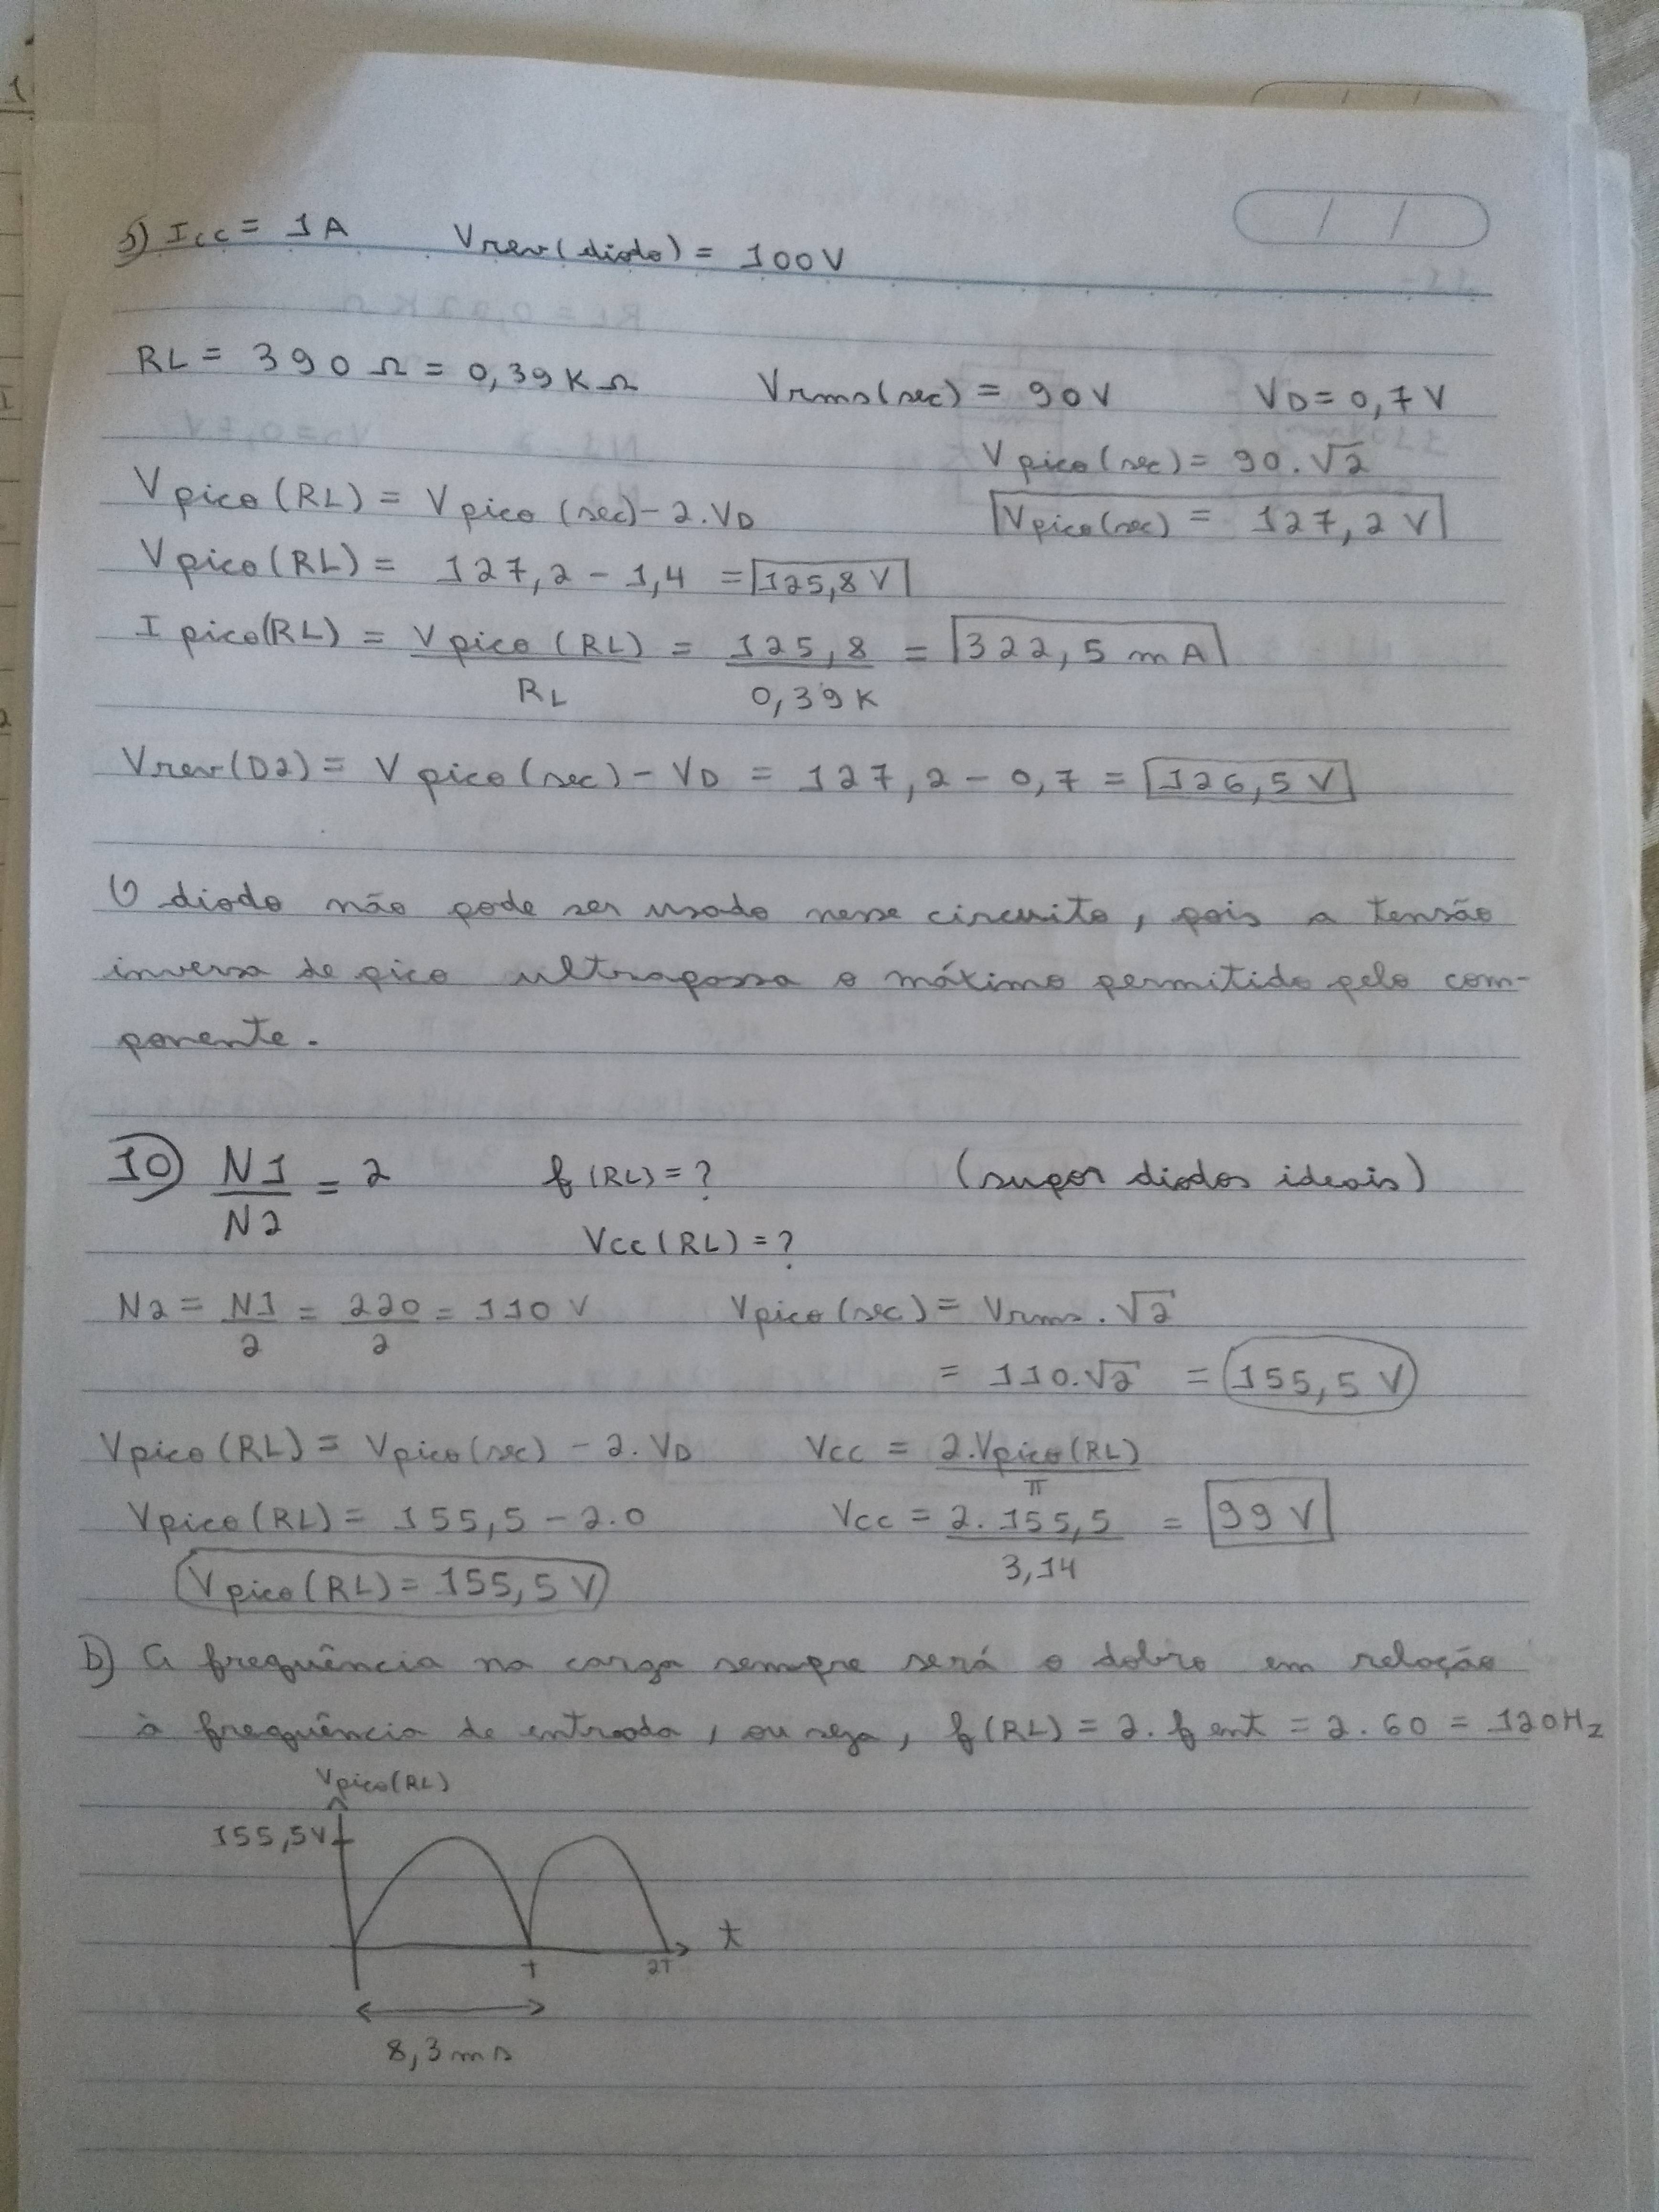 Icc = 1A Vrev(diodo) = 100V
RL = 390 Ω = 0,39KΩ Vrms(sec) = 90V VD = 0,7V
Vpico(sec) = 90.√2
Vpico(RL) = Vpico(sec) - 2.VD
Vpico(sec) = 127,2 V
Vpico(RL) = 127,2 - 1,4 = 125,8 V
Ipico(RL) = Vpico(RL) / RL = 125,8 / 0,39K = 322,5 mA
Vrev(D2) = Vpico(sec) - VD = 127,2 - 0,7 = 126,5 V
O diodo não pode ser usado nesse circuito, pois a tensão
inversa de pico ultrapassa o máximo permitido pelo com-
ponente.
10) N1 / N2 = 2 f(RL) = ? (supor diodos ideais)
Vcc(RL) = ?
N2 = N1 / 2 = 220 / 2 = 110 V Vpico(sec) = Vrms.√2
= 110.√2 = 155,5 V
Vpico(RL) = Vpico(sec) - 2.VD Vcc = 2.Vpico(RL) / π
Vpico(RL) = 155,5 - 2.0 Vcc = 2.155,5 / 3,14 = 99 V
Vpico(RL) = 155,5 V
b) A frequência na carga sempre será o dobro em relação
à frequência de entrada, ou seja, f(RL) = 2.f ent = 2.60 = 120Hz
Vpico(RL)
155,5V
t
T 2T
8,3ms